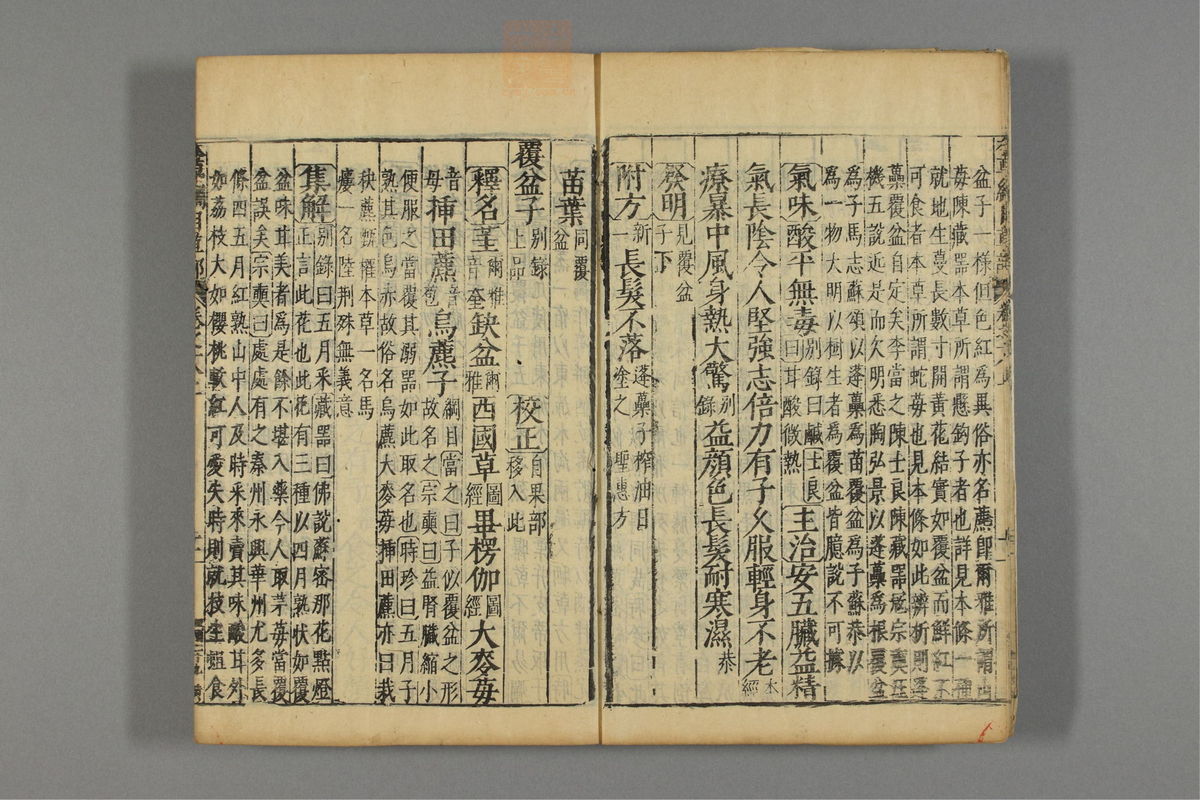 盆子一樣但色紅為異俗亦名藨即爾雅所謂山
莓陳藏器本草所謂懸鉤子者也詳見本條一種
就地生蔓長數寸開黃花結實如覆盆而鮮紅不
可食者本草所謂蛇莓也見本條如此辨析則蓬
蘽覆盆自定矣李當之陳士良陳藏器寇宗奭汪
機五說近是而欠明悉陶弘景以蓬蘽為根覆盆
為子馬志蘇頌以蓬蘽為苗覆盆為子蘇恭以
為一物大明以樹生者為覆盆皆臆說不可據
氣味酸平無毒別錄曰鹹士良曰甘酸微熱主治安五臟益精
氣長陰令人堅強志倍力有子久服輕身不老本經
療暴中風身熱大驚別錄益顏色長髮耐寒濕恭
發明見覆盆子下
附方新一長髮不落蓬蘽子榨油日塗之聖惠方
苗葉同覆盆
覆盆子別錄上品校正自果部移入此
釋名堇爾雅音奎缺盆爾雅西國草圖經畢楞伽圖經大麥莓
音母挿田藨音苞烏藨子綱目當之曰子似覆盆之形故名之宗奭曰益腎臟縮小
便服之當覆其溺器如此取名也時珍曰五月子
熟其色烏赤故俗名烏藨大麥莓挿田藨亦曰栽
秧藨甄權本草一名馬
瘻一名陸荆殊無義意
集解別錄曰五月采藏器曰佛說蘇密那花點燈正言此花也此花有三種以四月熟狀如覆
盆味甘美者為是餘不堪入藥今人取茅莓當覆
盆誤矣宗奭曰處處有之秦州永興華州尤多長
條四五月紅熟山中人及時采來賣其味酸甘外
如荔枝大如櫻桃軟紅可愛失時則就枝生蛆食